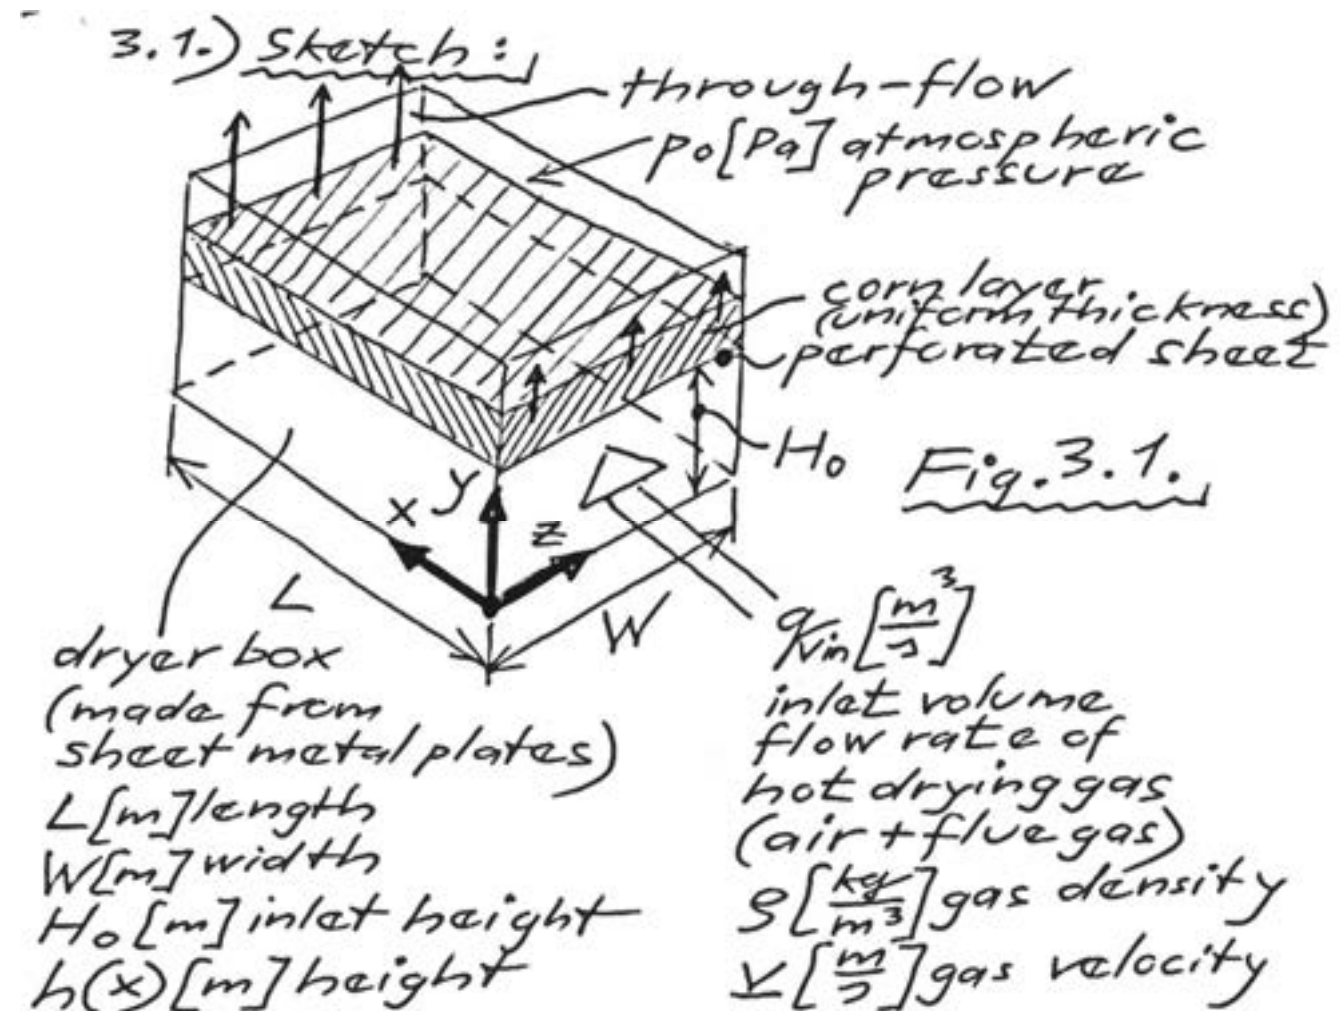 3.1.) Sketch:
through-flow
p₀[Pa] atmospheric
pressure
corn layer
(uniform thickness)
perforated sheet
H₀
Fig. 3.1.
y
x
z
L
W
dryer box
(made from
sheet metal plates)
L[m] length
W[m] width
H₀[m] inlet height
h(x)[m] height
qVin[m³/s]
inlet volume
flow rate of
hot drying gas
(air + flue gas)
ρ[kg/m³] gas density
v[m/s] gas velocity